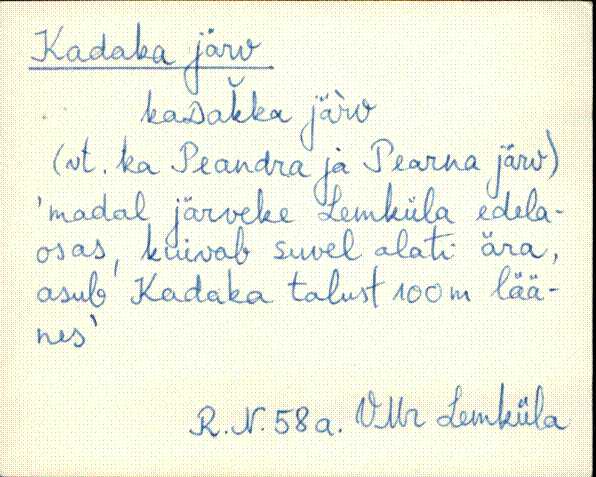 Kadaka järv
kaᴅak̆ka jäὶv
(vt. ka Peandra ja Pearna järv)
'madal järveke Lemküla edela-
osas, kuivab suvel alati ära,
asub Kadaka talust 100 m lää-
nes'
R.N. 58a. VMr Lemküla